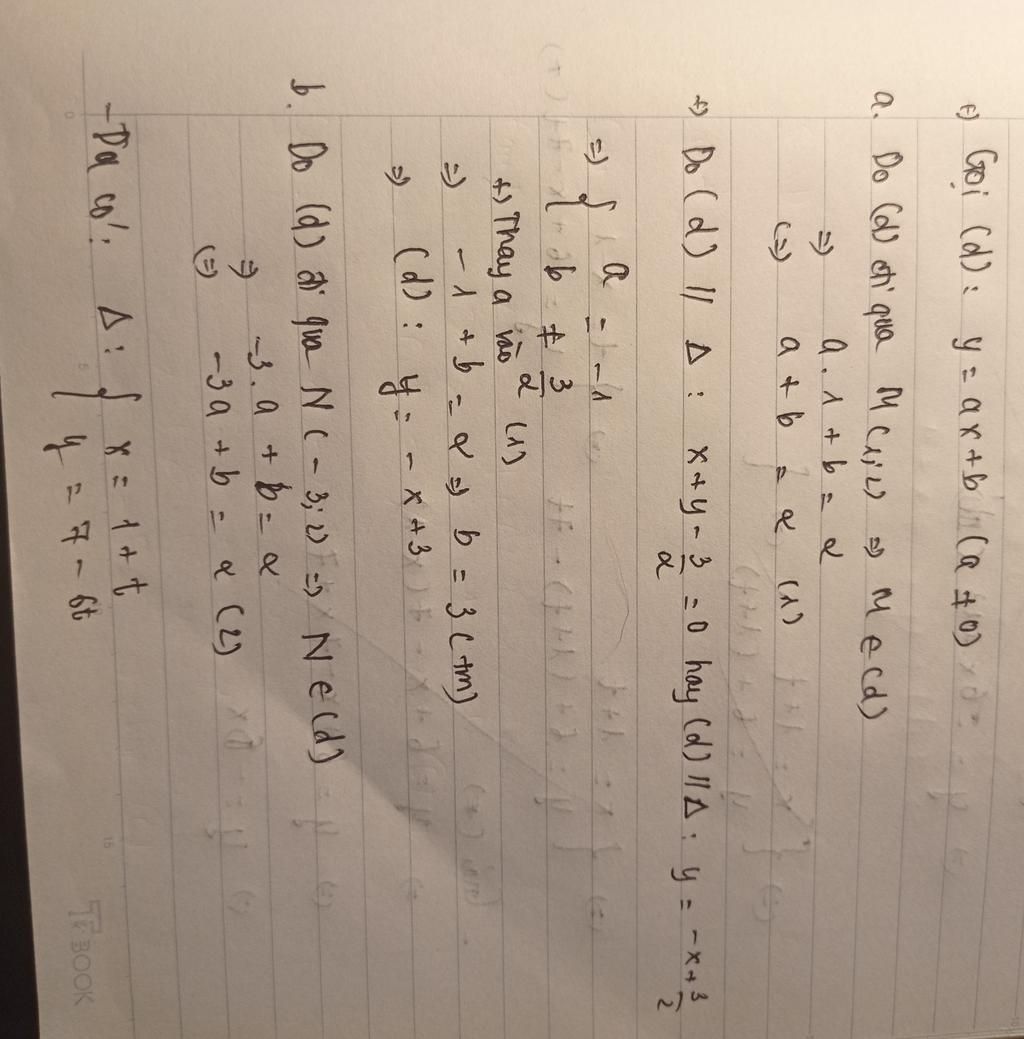 +) Gọi (d): y = ax + b (a ≠ 0)
a. Do (d) đi qua M(1;2) => M ∈ (d)
=> a.1 + b = 2
(=) a + b = 2 (1)
+) Do (d) // Δ: x + y - 3/2 = 0 hay (d) // Δ: y = -x + 3/2
=> { a = -1
b ≠ 3/2
+) Thay a vào (1)
=> -1 + b = 2 => b = 3 (tm)
=> (d): y = -x + 3
b. Do (d) đi qua N(-3;2) => N ∈ (d)
=> -3.a + b = 2
(=) -3a + b = 2 (2)
- Ta có: Δ: { x = 1 + t
y = 7 - 6t
TKBOOK